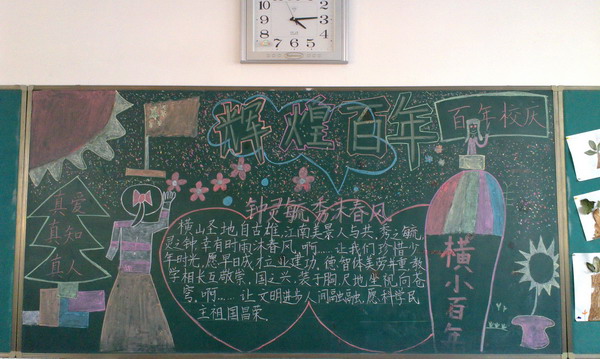 辉煌百年
百年校庆
真爱
真知
真人
钟灵毓秀沐春风
横山圣地自古雄,江南美景人与共,秀之毓,
灵之钟,幸有时雨沐春风,啊……让我们珍惜少
年时光,愿早日成才立业建功,德智体美劳并重,教
学相长互敬崇,国之兴,装于胸,尺地坐骑向苍
穹,啊……让文明进步人间融融,愿科学民
主祖国昌荣.
横小百年
12
1
2
3
4
5
6
7
8
9